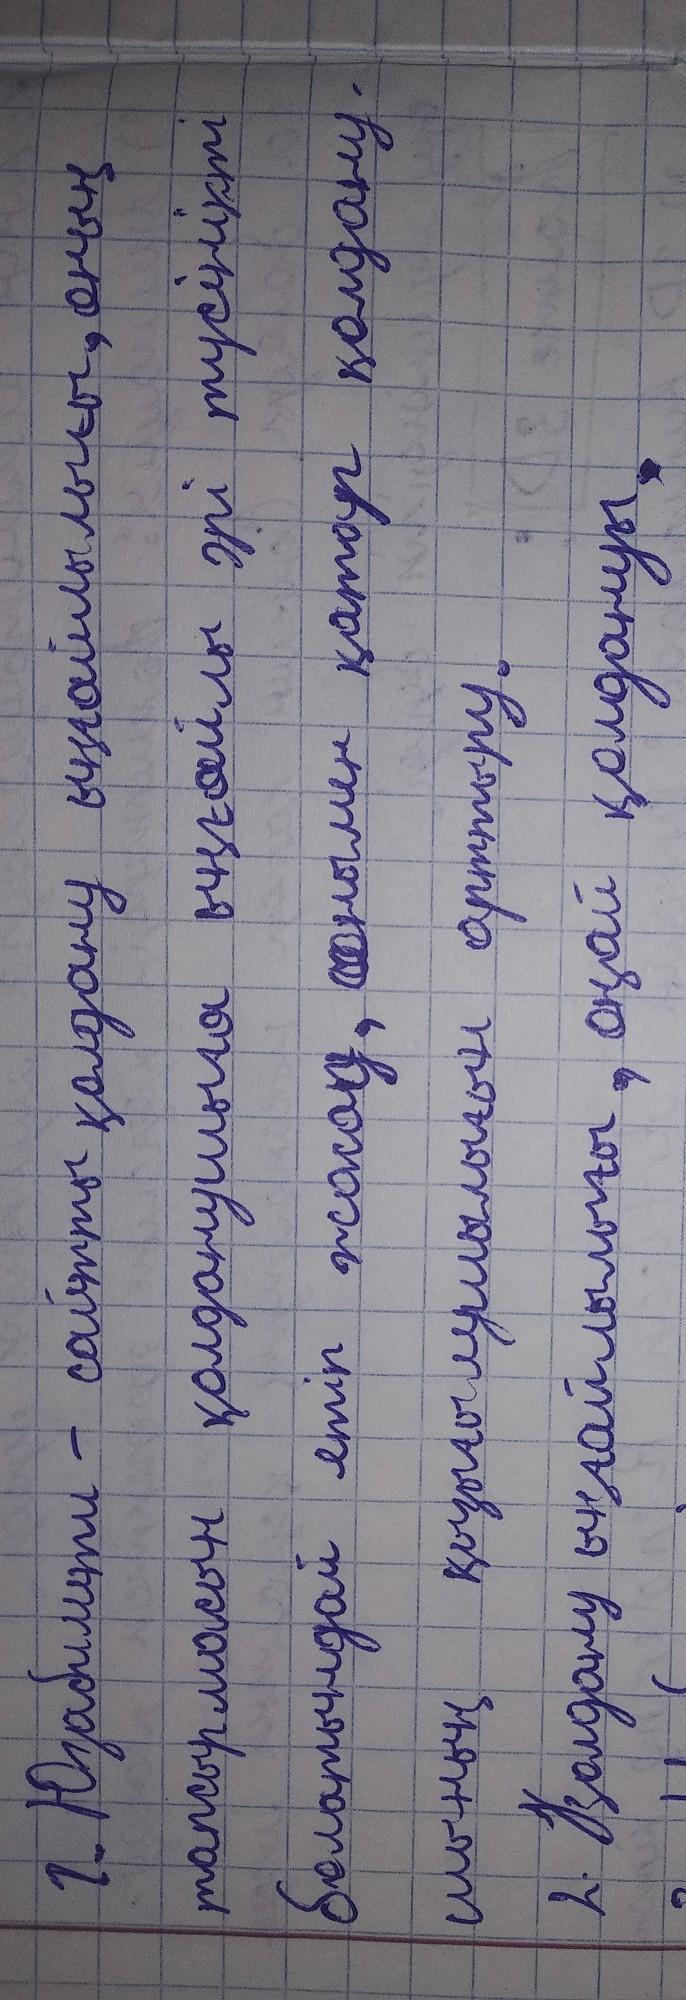 1. Юзабилити - сайтты қолдану ыңғайлылығы, оның
тапсырмасын қолданушыға ыңғайлы әрі түсінікті
болатындай етіп жасау, онымен қатар қолдану-
шының қызығушылығын арттыру.
2. Қолдану ыңғайлылығы, оңай қолдануы,